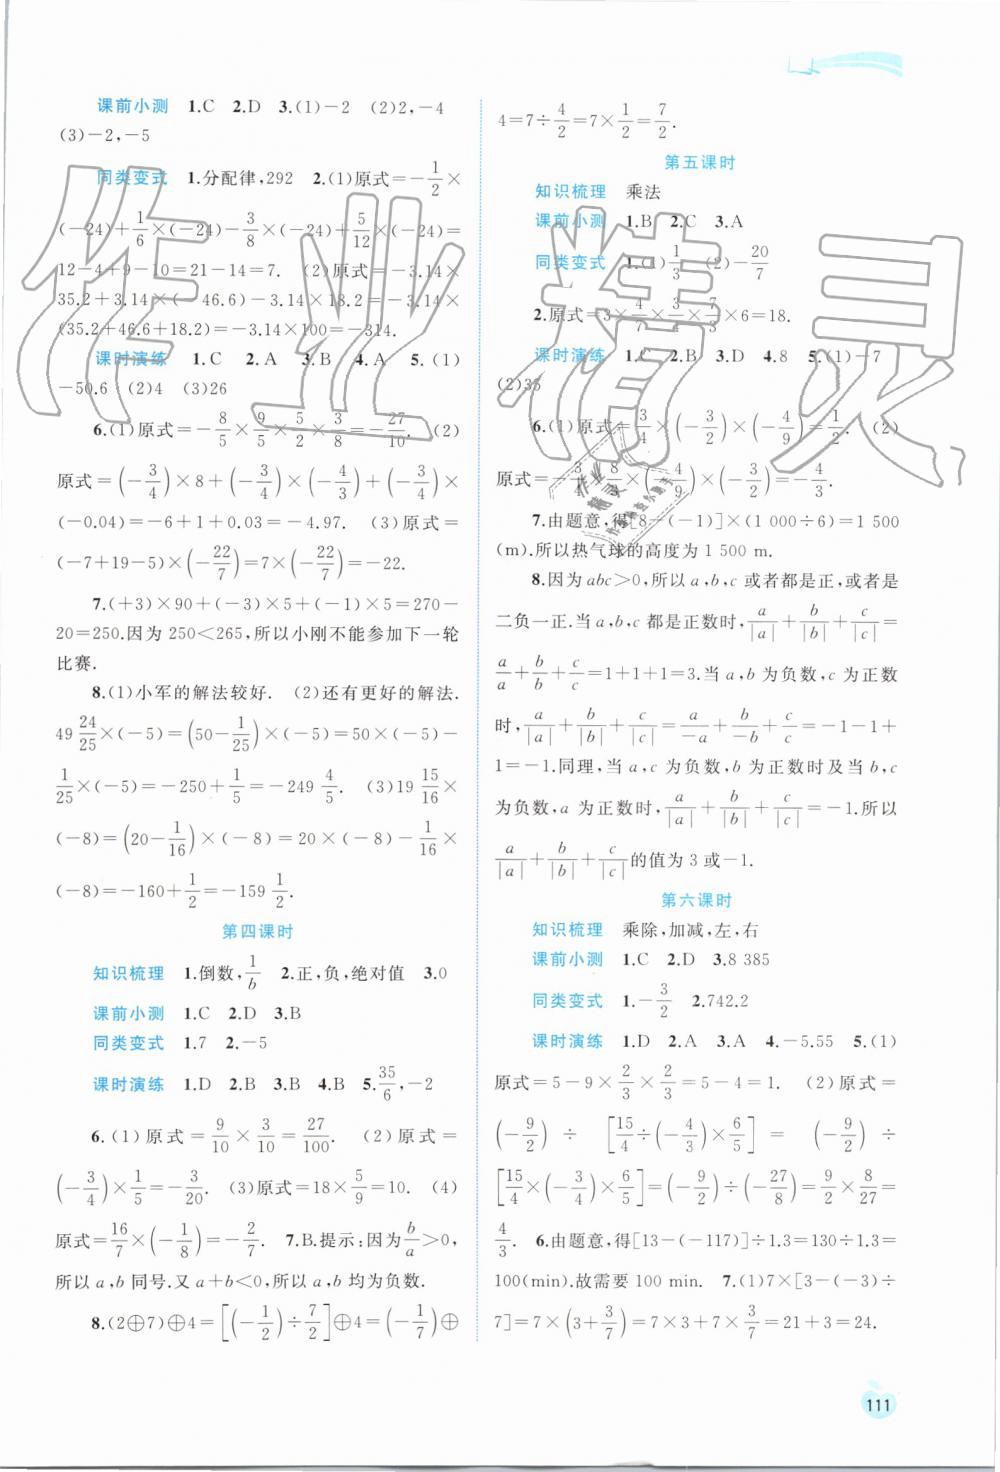 课前小测 1.C 2.D 3.(1)-2 (2)2,-4
(3)-2,-5
同类变式 1.分配律,292 2.(1)原式=-1/2×
(-24)+1/6×(-24)-3/8×(-24)+5/12×(-24)=
12-4+9-10=21-14=7. (2)原式=-3.14×
35.2+3.14×(-46.6)-3.14×18.2=-3.14×
(35.2+46.6+18.2)=-3.14×100=-314.
课时演练 1.C 2.A 3.B 4.A 5.(1)
-50.6 (2)4 (3)26
6.(1)原式=-8/5×9/5×5/2×3/8=-27/10. (2)
原式=(-3/4)×8+(-3/4)×(-4/3)+(-3/4)×
(-0.04)=-6+1+0.03=-4.97. (3)原式=
(-7+19-5)×(-22/7)=7×(-22/7)=-22.
7.(+3)×90+(-3)×5+(-1)×5=270-
20=250.因为 250<265,所以小刚不能参加下一轮
比赛.
8.(1)小军的解法较好. (2)还有更好的解法.
49 24/25×(-5)=(50-1/25)×(-5)=50×(-5)-
1/25×(-5)=-250+1/5=-249 4/5. (3)19 15/16
×(-8)=(20-1/16)×(-8)=20×(-8)-1/16×
(-8)=-160+1/2=-159 1/2.
第四课时
知识梳理 1.倒数,1/b 2.正,负,绝对值 3.0
课前小测 1.C 2.D 3.B
同类变式 1.7 2.-5
课时演练 1.D 2.B 3.B 4.B 5.35/6,-2
6.(1)原式=9/10×3/10=27/100. (2)原式=
(-3/4)×1/5=-3/20. (3)原式=18×5/9=10. (4)
原式=16/7×(-1/8)=-2/7. 7.B.提示:因为b/a>0,
所以 a,b 同号.又 a+b<0,所以 a,b 均为负数.
8.(2⊕7)⊕4=[(-1/2)÷7/2]⊕4=(-1/7)⊕
4=7÷4/2=7×1/2=7/2.
第五课时
知识梳理 乘法
课前小测 1.B 2.C 3.A
同类变式 1.(1)1/3 (2)-20/7
2.原式=3×4/7×3/4×7/3×6=18.
课时演练 1.C 2.B 3.D 4.8 5.(1)-7
(2)35
6.(1)原式=3/4×(-3/2)×(-4/9)=1/2. (2)
原式=-3/4×8/9×(-4/9)×(-3/2)=
7.由题意,得[8-(-1)]×(1 000÷6)=1 500
(m).所以热气球的高度为 1 500 m.
8.因为 abc>0,所以 a,b,c 或者都是正,或者是
二负一正.当 a,b,c 都是正数时,a/|a|+b/|b|+c/|c|=
a/a+b/b+c/c=1+1+1=3.当 a,b 为负数,c 为正数
时,a/|a|+b/|b|+c/|c|=a/-a+b/-b+c/c=-1-1+
1=-1.同理,当 a,c 为负数,b 为正数时及当 b,c
为负数,a 为正数时,a/|a|+b/|b|+c/|c|=-1.所以
a/|a|+b/|b|+c/|c|的值为 3 或-1.
第六课时
知识梳理 乘除,加减,左,右
课前小测 1.C 2.D 3.8 385
同类变式 1.-3/2 2.742.2
课时演练 1.D 2.A 3.A 4.-5.55 5.(1)
原式=5-9×2/3×2/3=5-4=1. (2)原式=
(-9/2)÷[15/4÷(-4/3)×6/5]=(-9/2)÷
[15/4×(-3/4)×6/5]=(-9/2)÷(-27/8)=9/2×8/27=
4/3. 6.由题意,得[13-(-117)]÷1.3=130÷1.3=
100(min).故需要 100 min. 7.(1)7×[3-(-3)÷
7]=7×(3+3/7)=7×3+7×3/7=21+3=24.
111
作业精灵